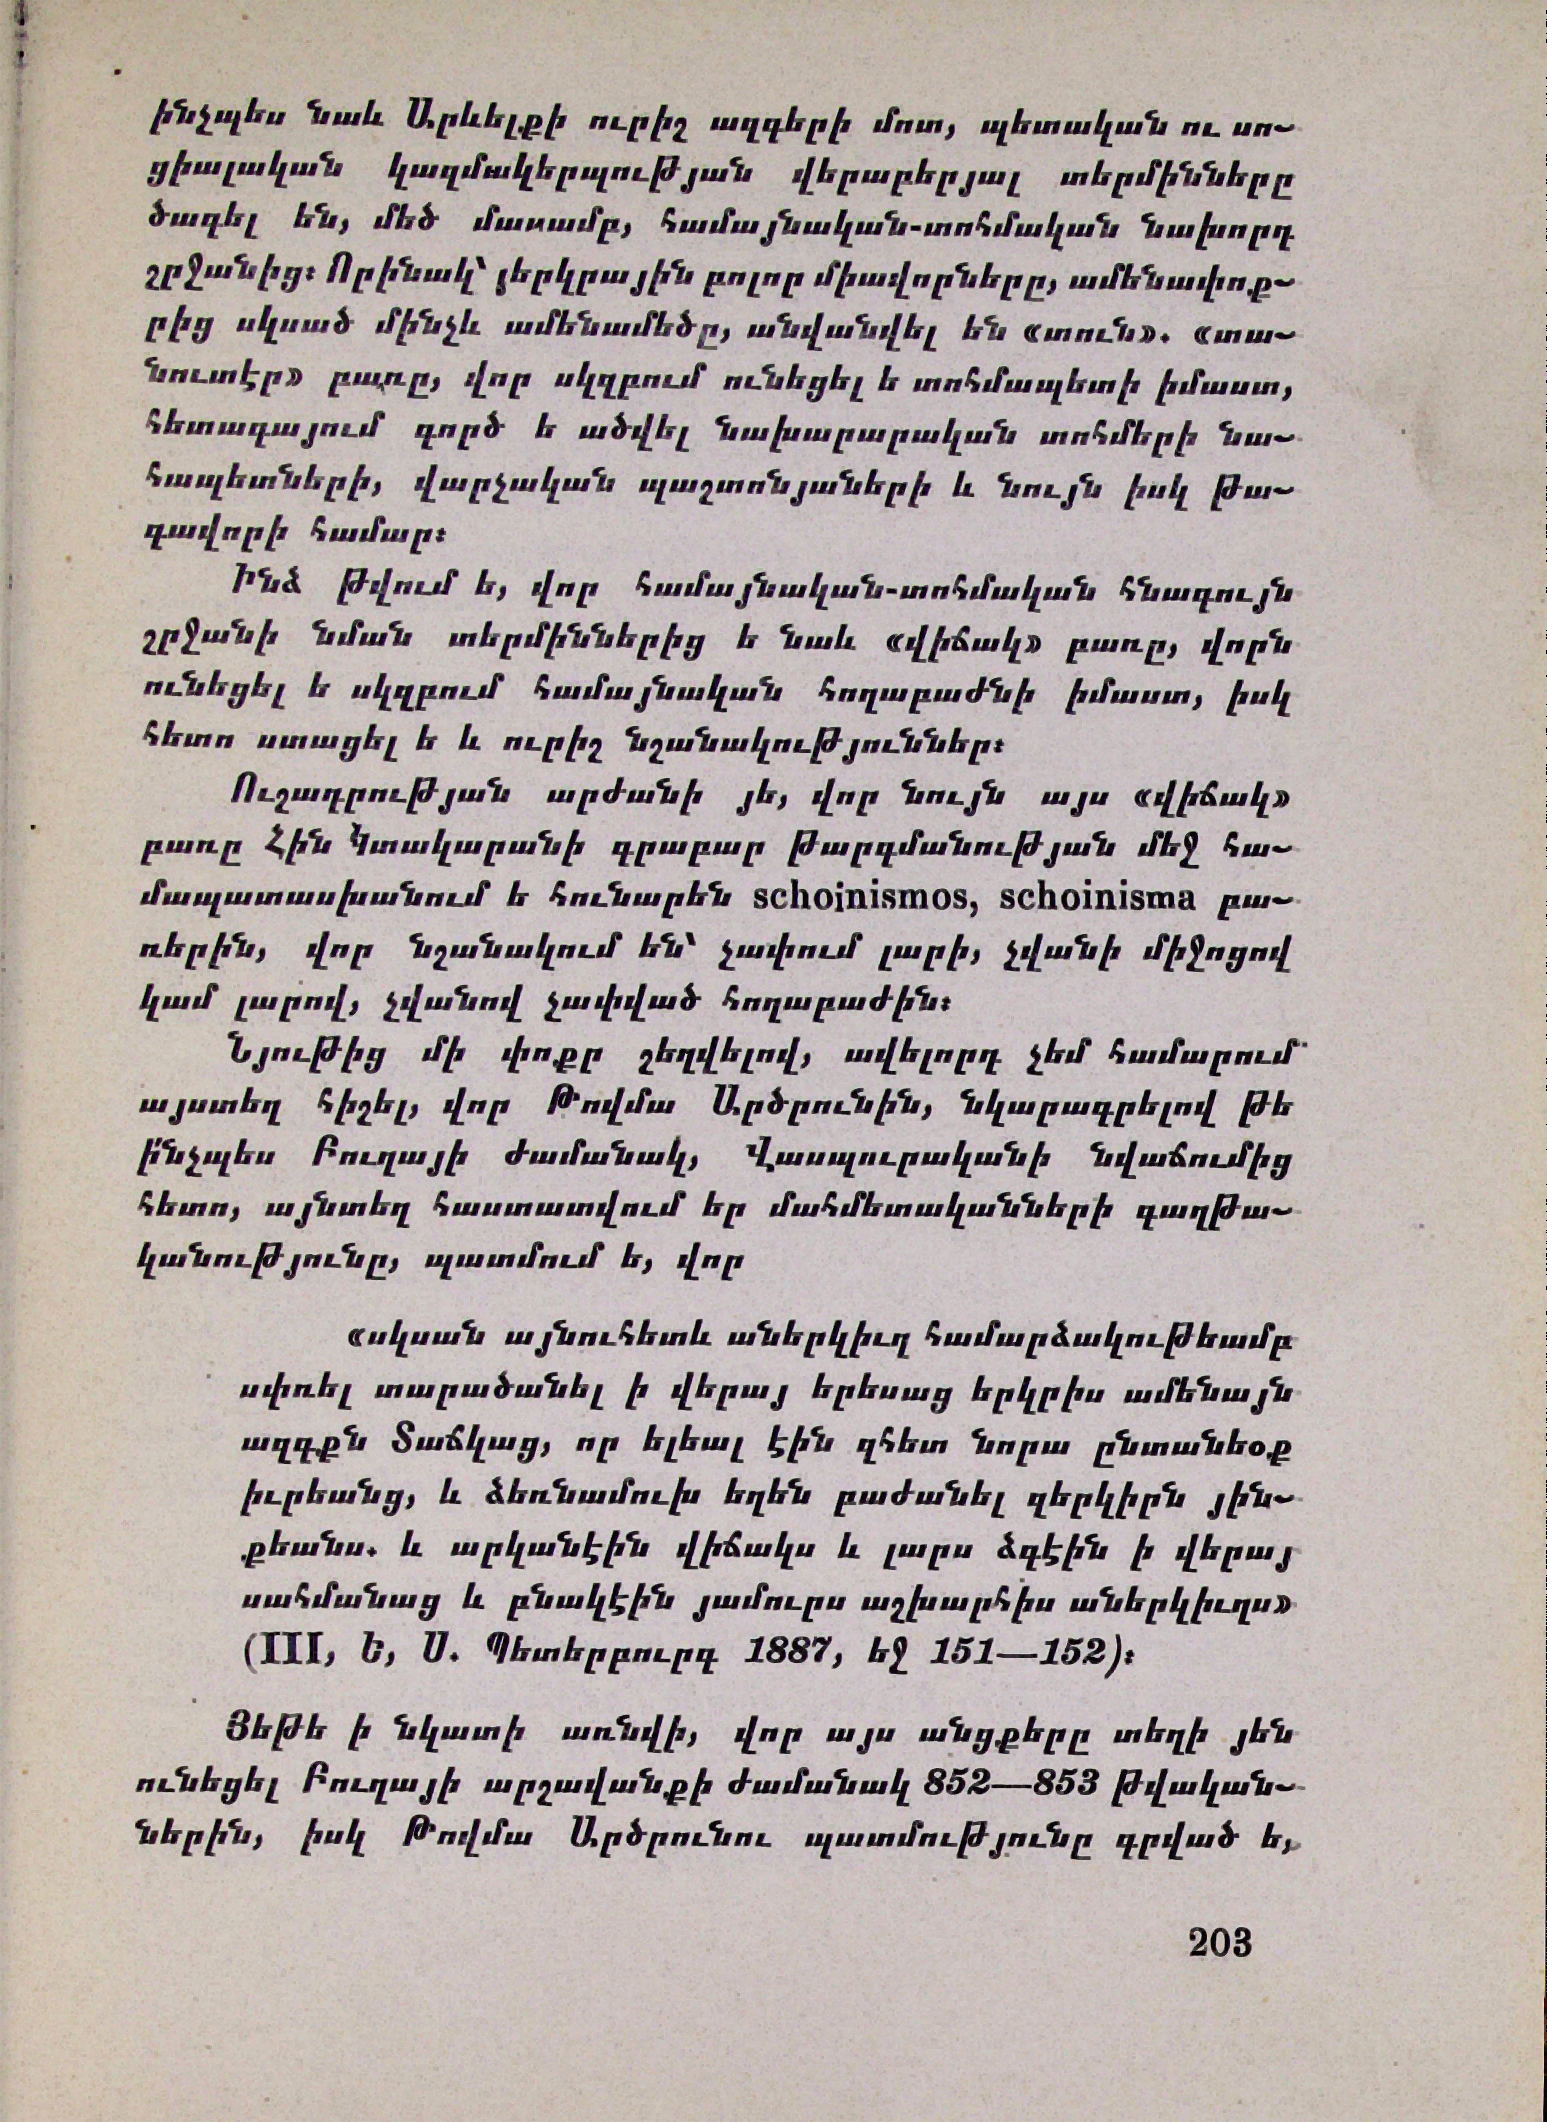 ինչպես նաև Արևելքի ուրիշ ազգերի մոտ, պետական ու սո֊
ցիալական կազմակերպության վերաբերյալ տերմինները
ծագել են, մեծ մասամբ, համայնական-տոհմական նախորդ
շրջանից։ Որինակ՝ յերկրային բոլոր միավորները, ամենափոք֊
րից սկսած մինչև ամենամեծը, անվանվել են «տուն». «տա֊
նուտէր» բառը, վոր սկզբում ունեցել ե տոհմապետի իմաստ,
հետագայում գործ ե ածվել նախարարական տոհմերի նա֊
հապետների, վարչական պաշտոնյաների և նույն իսկ թա֊
գավորի համար։
Ինձ թվում ե, վոր համայնական-տոհմական հնագույն
շրջանի նման տերմիններից ե նաև «վիճակ» բառը, վորն
ունեցել ե սկզբում համայնական հողաբաժնի իմաստ, իսկ
հետո ստացել ե և ուրիշ նշանակություններ։
Ուշադրության արժանի յե, վոր նույն այս «վիճակ»
բառը Հին Կտակարանի գրաբար թարգմանության մեջ հա֊
մապատասխանում ե հունարեն schoinismos, schoinisma բա֊
ռերին, վոր նշանակում են՝ չափում լարի, չվանի միջոցով
կամ լարով, չվանով չափված հողաբաժին։
Նյութից մի փոքր շեղվելով, ավելորդ չեմ համարում
այստեղ հիշել, վոր Թովմա Արծրունին, նկարագրելով թե
ի՛նչպես Բուղայի ժամանակ, Վասպուրականի նվաճումից
հետո, այնտեղ հաստատվում եր մահմետականների գաղթա֊
կանությունը, պատմում ե, վոր
«սկսան այնուհետև աներկիւղ համարձակութեամբ
սփռել տարածանել ի վերայ երեսաց երկրիս ամենայն
ազգքն Տաճկաց, որ ելեալ էին զհետ նորա ընտանեօք
իւրեանց, և ձեռնամուխ եղեն բաժանել զերկիրն յին֊
քեանս. և արկանէին վիճակս և լարս ձգէին ի վերայ
սահմանաց և բնակէին յամուրս աշխարհիս աներկիւղս»
(III, Ե, Ս. Պետերբուրգ 1887, եջ 151—152)։
Յեթե ի նկատի առնվի, վոր այս անցքերը տեղի յեն
ունեցել Բուղայի արշավանքի ժամանակ 852—853 թվական֊
ներին, իսկ Թովմա Արծրունու պատմությունը գրված ե,
203